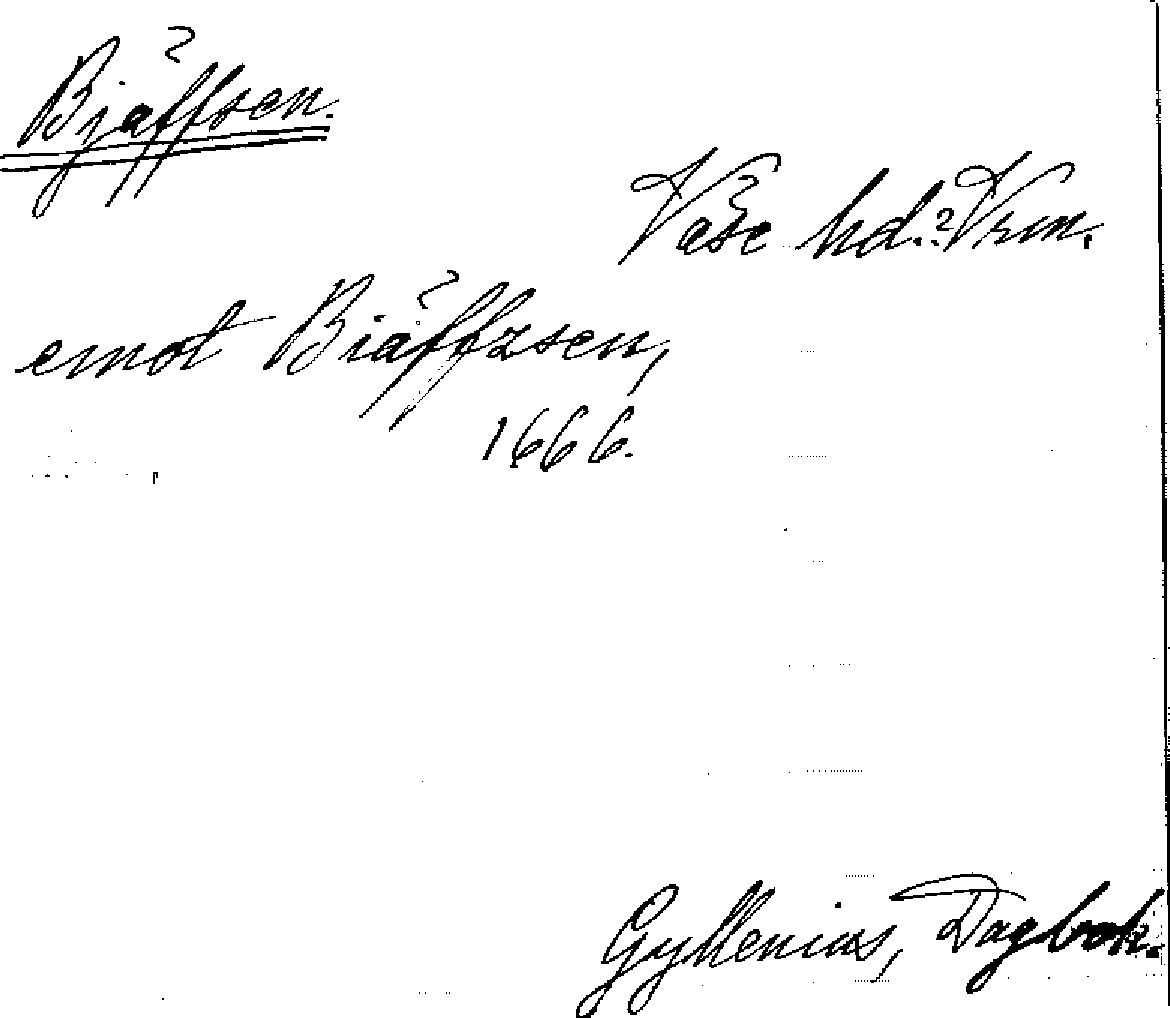 Bjäffsen.
Väse hd.? Vrm.
emot Biäffzsen,
1666.
Gyllenius, Dagbok.